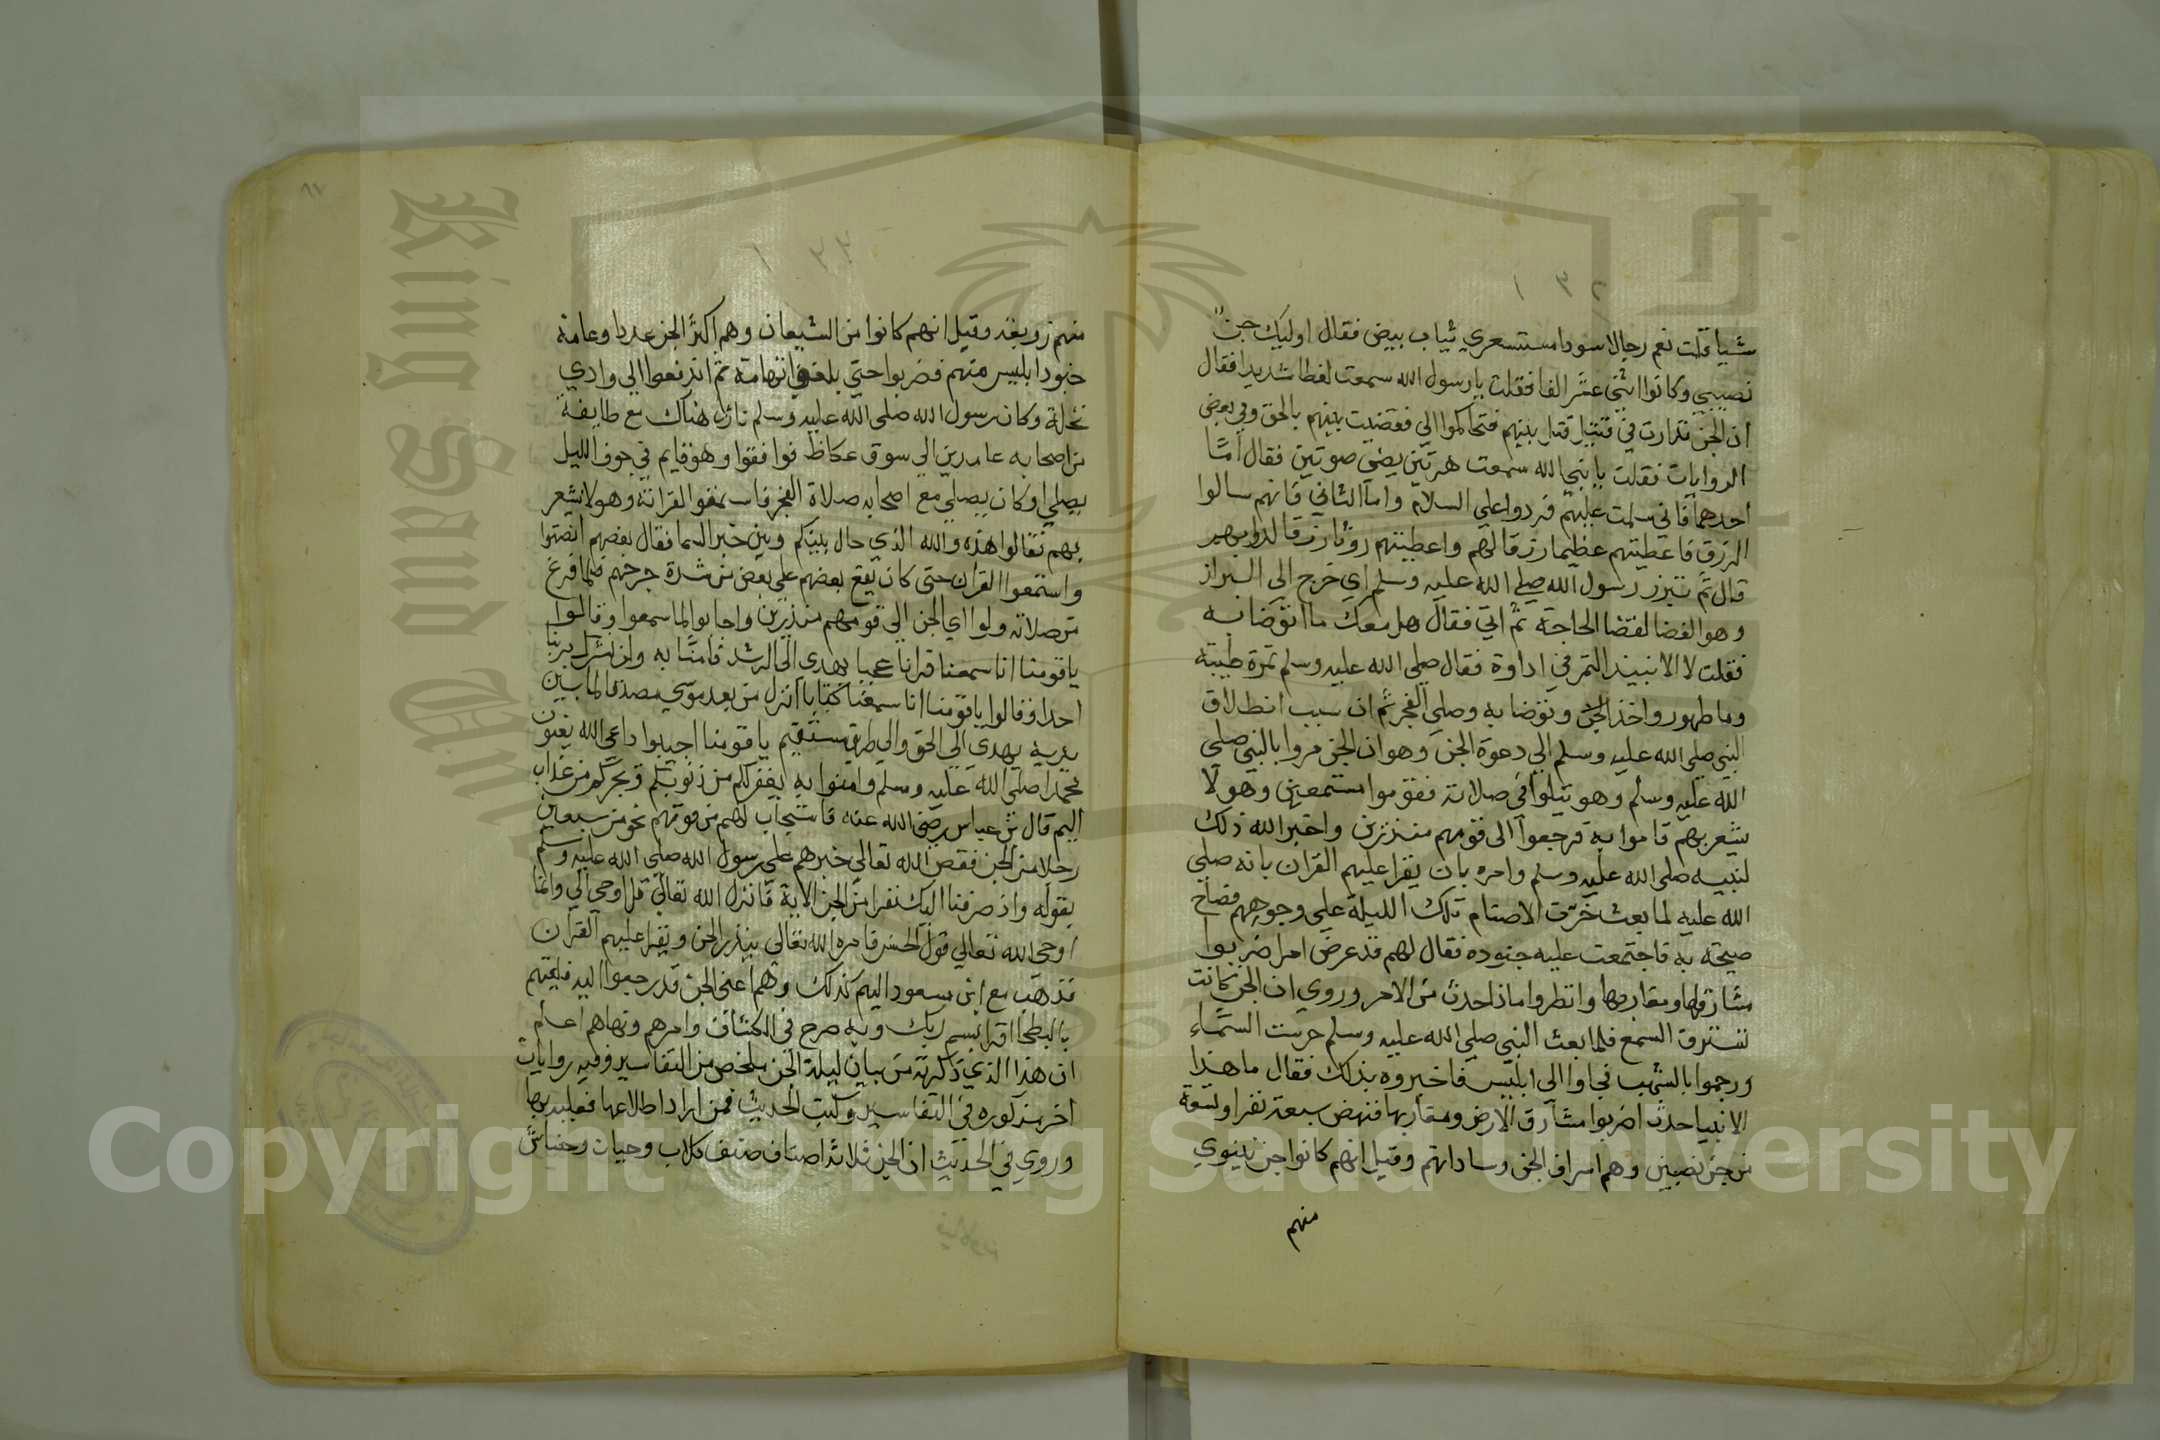 شيا قلت نعم رجالا سودا مستشعري ثياب بيض فقال اوليك جن
نصيبين وكانوا اثني عشر الفا فقلت يا رسول الله سمعت لغطا شديدا فقال
ان الجن تدارت في قتيل قتل بينهم فتحاكموا الي فقضيت بينهم بالحق وفي بعض
الروايات فقلت يا نبي الله سمعت هرتين يعني صوتين فقال اما
احدهما فاني سلمت عليهم فردوا علي السلام واما الثاني فانهم سالوا
الرزق فاعطيتهم عظيما رزقا لهم واعطيتهم روثا رزقا لدوابهم
قال ثم تبرز رسول الله صلي الله عليه وسلم اي خرج الي البراز
وهو الفضا لقضا الحاجة ثم اتي فقال هل معك ما اتوضا به
فقلت لا الا نبيذ التمر في اداوة فقال صلي الله عليه وسلم تمرة طيبة
وما طهور واخذ وتوضا به وصلي الفجر ثم ان سبب انطلاق
النبي صلي الله عليه وسلم الي دعوة الجن وهو ان الجن مروا بالنبي صلي
الله عليه وسلم وهو يتلوا في صلاته فقوموا مستمعين وهو لا
يشعر بهم فاموا به فرجعوا الى قومهم منذرين واخبر الله ذلك
لنبيه صلي الله عليه وسلم وامره بان يقرا عليهم القران بانه صلي
الله عليه لما بعث خرت الاصنام تلك الليلة علي وجوههم فصاح
صيحة به فاجتمعت عليه جنوده فقال لهم قد عرض امر اضربوا
مشارقها ومغاربها وانظروا ماذا حدث من الامر وروي ان الجن كانت
تسترق السمع فلما بعث النبي صلي الله عليه وسلم حرست السماء
ورجموا بالشهب فجاوا الي ابليس فاخبروه بذلك فقال ما هذا
الا نبيا حدث اضربوا مشارق الارض ومغاربها فنهض سبعة نفر او تسعة
من جن نصيبين وهم اشراف الجن وساداتهم وقيل انهم كانوا جن نينوي
منهم
منهم زوبعة وقيل انهم كانوا من الشيصان وهم اكثر الجن عددا وعامة
جنود ابليس منهم فضربوا حتي بلغوا تهامة ثم اندفعوا الي وادي
نخلة وكان رسول الله صلي الله عليه وسلم نازل هناك مع طايفة
من اصحابه عامدين الي سوق عكاظ فوافقوا وهو قايم في جوف الليل
يصلي او كان يصلي مع اصحابه صلاة الفجر فاستمعوا لقراته وهو لا يشعر
بهم فقالوا هذه والله الذي حال بينكم وبين خبر السما فقال بعضهم انصتوا
واستمعوا القران حتي كان يقع بعضهم علي بعض من شدة حرصهم فلما فرغ
من صلاته ولوا اي الجن الي قومهم منذرين واجابوا لما سمعوا وقالوا
يا قومنا انا سمعنا قرانا عجبا يهدي الي الرشد فامنا به ولن نشرك بربنا
احدا وقالوا يا قومنا انا سمعنا كتابا انزل من بعد موسي مصدقا لما بين
يديه يهدي الي الحق والي طريق مستقيم يا قومنا اجيبوا داعي الله يعنون
محمدا صلي الله عليه وسلم وامنوا به يغفر لكم من ذنوبكم ويجركم من عذاب
اليم قال بن عباس رضي الله عنه فاستجاب لهم من قومهم نحو من سبعين
رجلا من الجن فقص الله تعالي خبرهم علي رسول الله صلي الله عليه وسلم
بقوله واذ صرفنا اليك نفرا من الجن الاية فانزل الله تعالي قل اوحي الي وانما
اوحي الله تعالي قول الجن فامره الله تعالي بينذر الجن ويقرا عليهم القران
فذهب مع ابن مسعود اليهم كذلك وهم اعني الجن قد رجعوا اليه فلقيهم
بالبطحا اقرا بسم ربك وبه صرح في الكشاف وامرهم ونهاهم اعلم
ان هذا الذي ذكرته من بيان ليلة الجن ملخص من التفاسير وفيه روايات
اخر مذكوره في التفاسير وكتب الحديث فمن اراد اطلاعها فعليه بها
وروي في الحديث ان الجن ثلاثة اصناف صنف كلاب وحيات وخشاش
Copyright © King Saud University
King Saud University